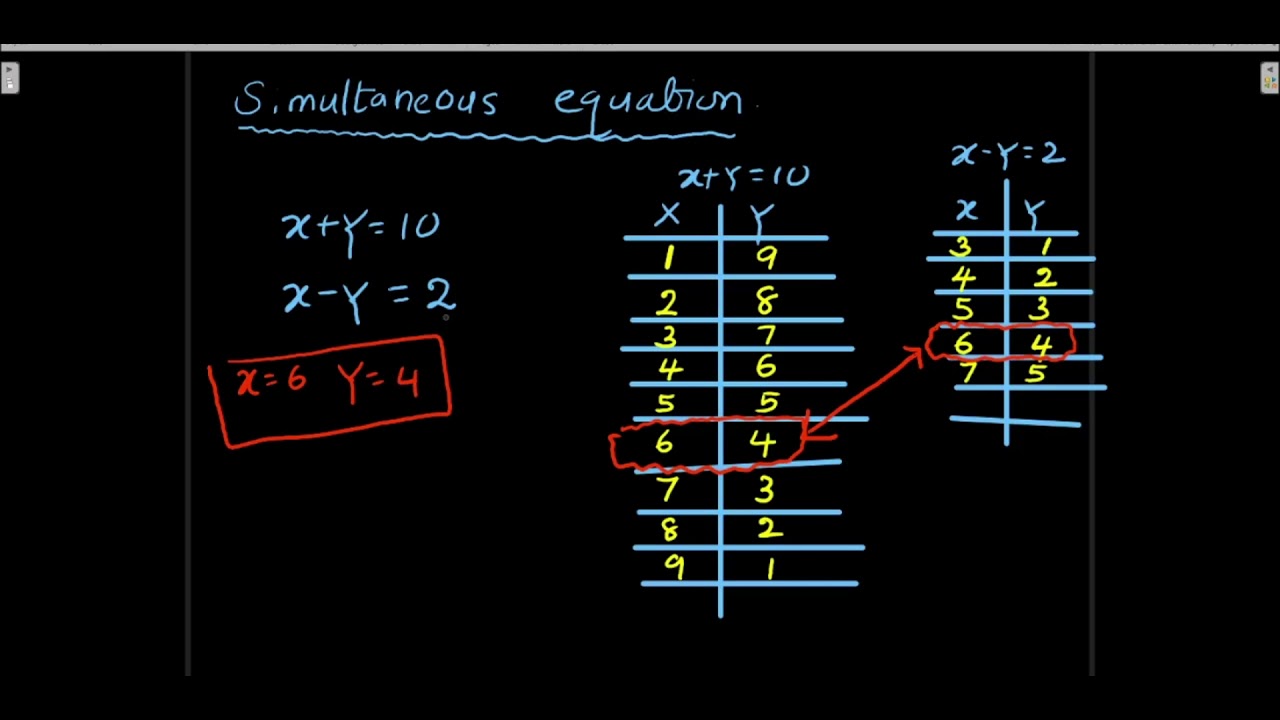 Simultaneous equation.
x+Y=10
x-Y=2
x=6 Y=4
x+Y=10
X Y
1 9
2 8
3 7
4 6
5 5
6 4
7 3
8 2
9 1
x-Y=2
x Y
3 1
4 2
5 3
6 4
7 5